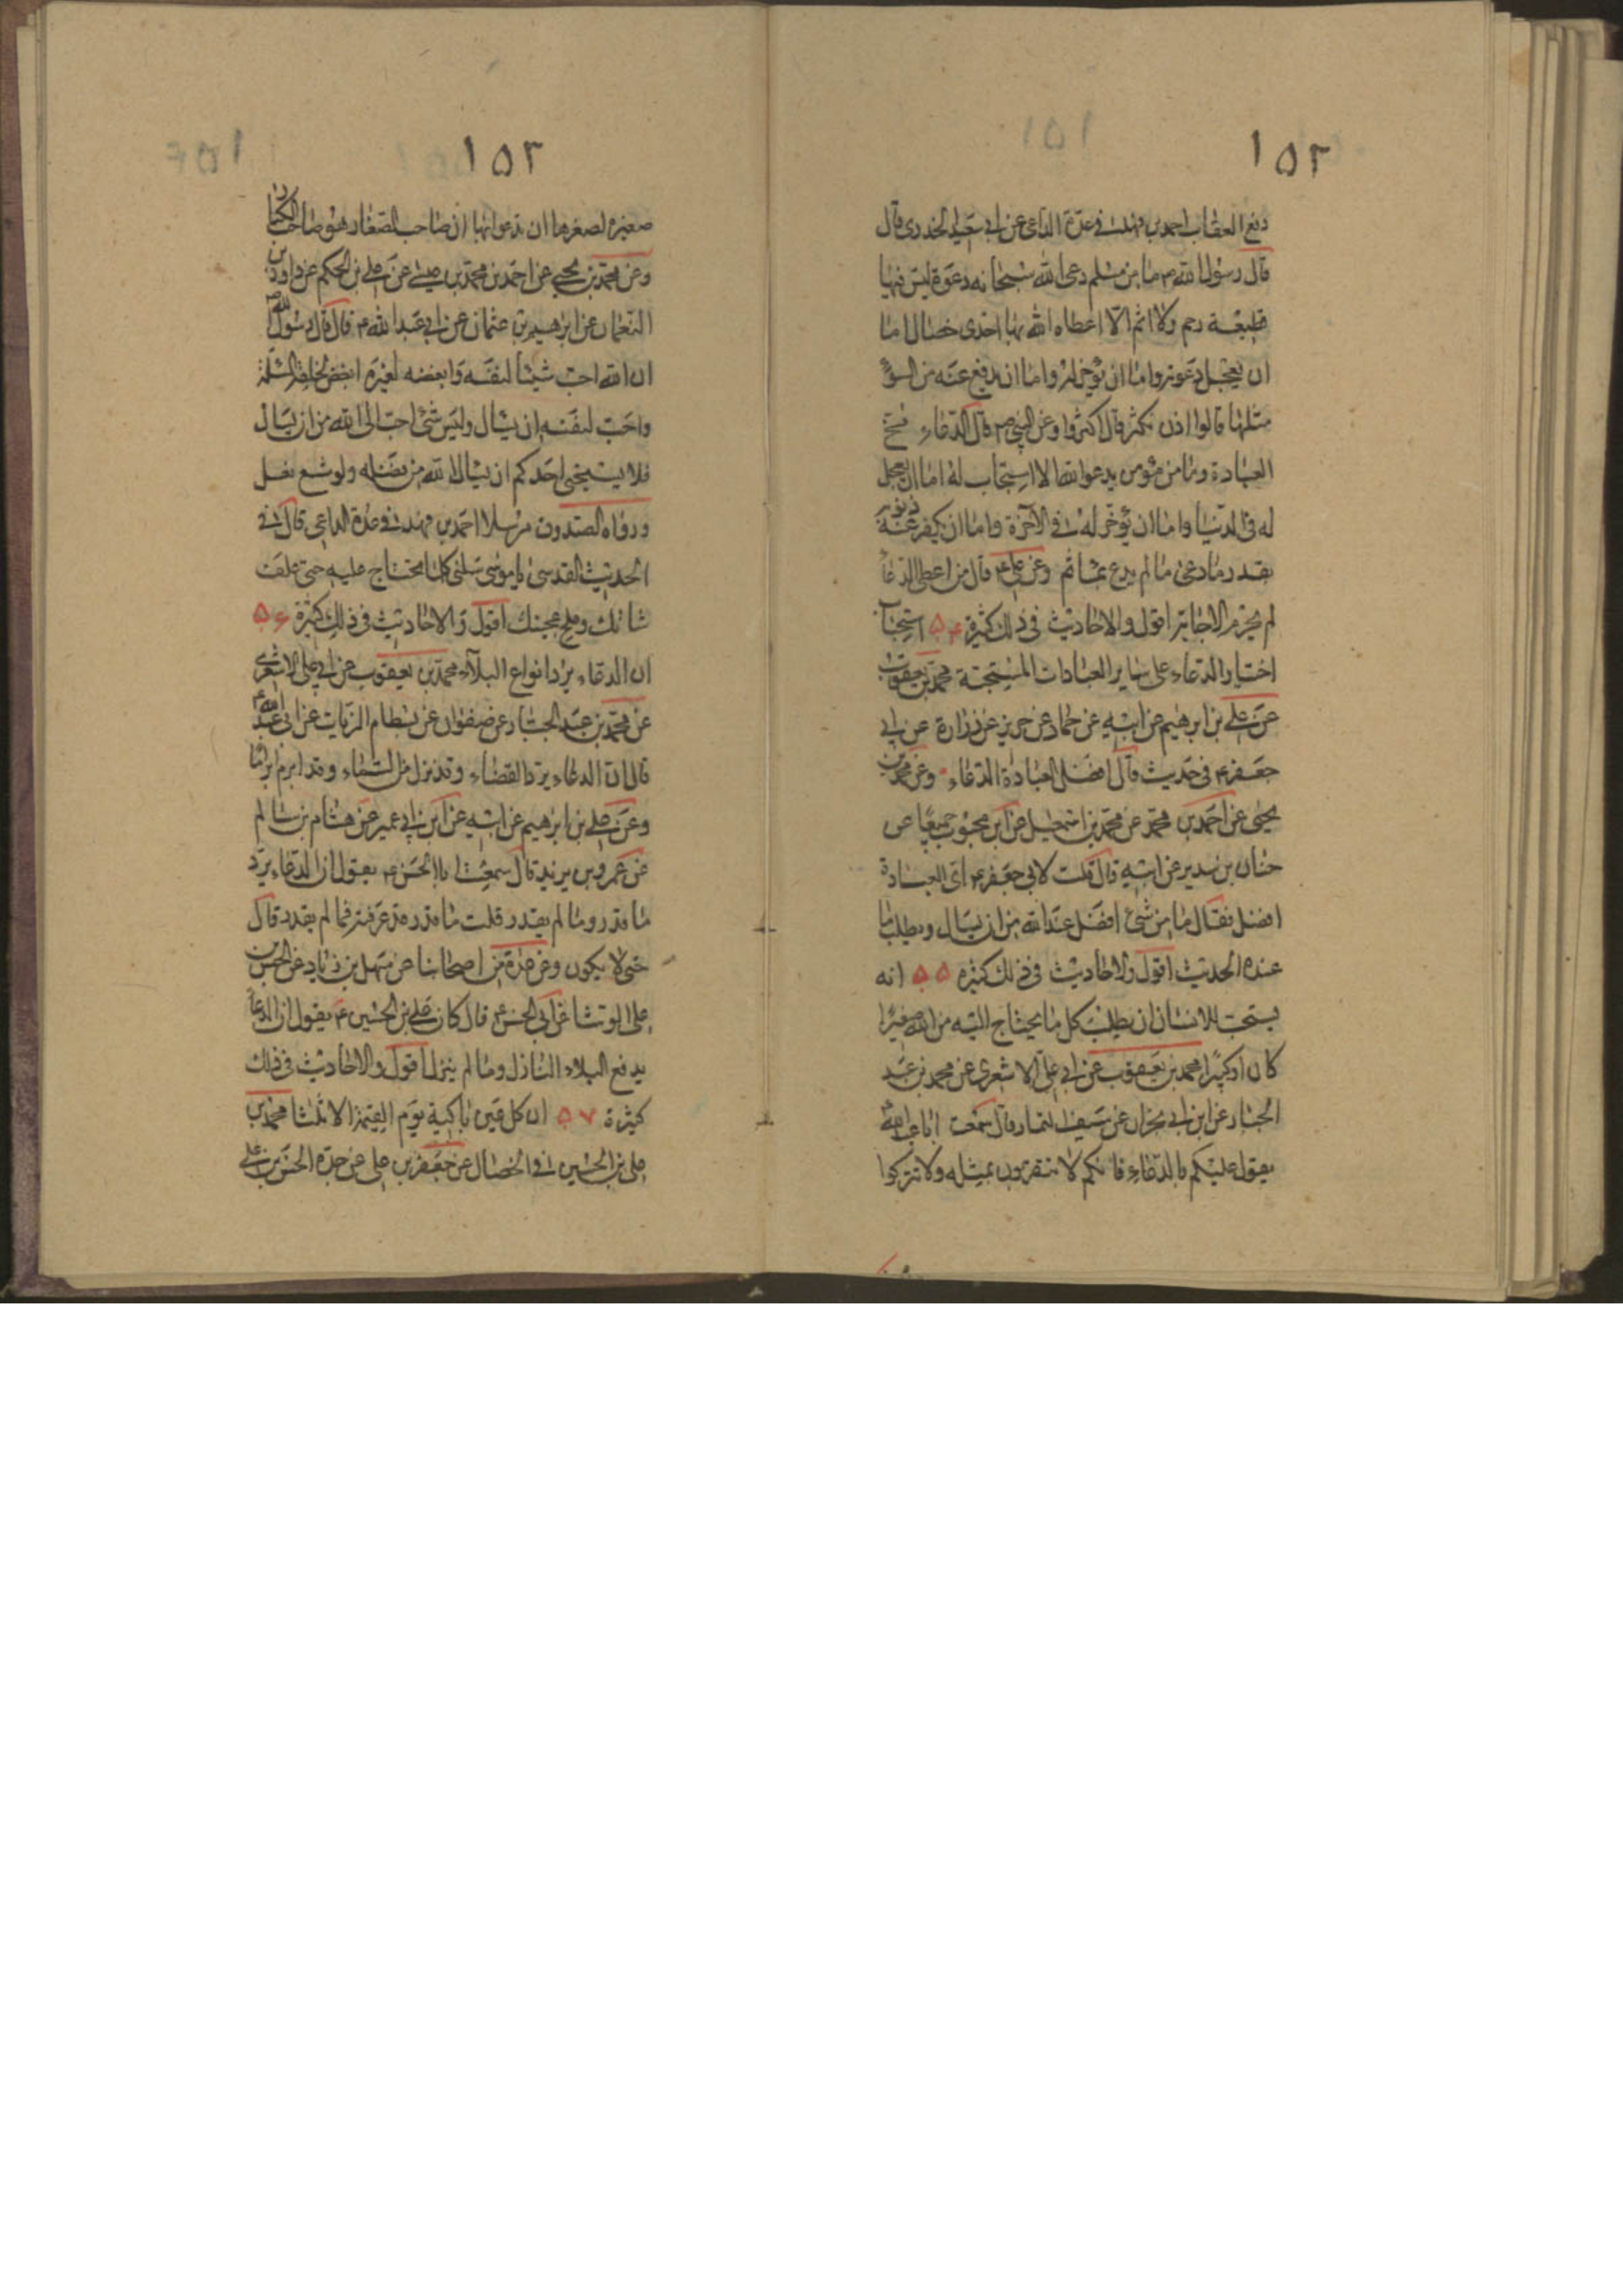 ١٥٢
دفع العقاب احمد بن فهد فى عدة الداعى عن ابى سعيد الخدرى قال
قال رسول الله ص ما من مسلم دعى الله سبحانه دعوة ليس فيها
قطيعة رحم ولا اثم الا اعطاه الله بها احدى خصال اما
ان يعجل دعوته واما ان يؤخر له واما ان يدفع عنه من السوء
مثلها قالوا اذن نكثر قال اكثروا وعن النبى ص قال الدعاء مخ
العبادة وما من مؤمن يدعو الله الا استجاب له اما ان يعجل
له فى الدنيا واما ان يؤخر له فى الآخرة واما ان يكفر عنه ذنوبه
بقدر ما دعى ما لم يدع بمأثم وعن على ع قال من اعطى الدعاء
لم يحرم الاجابة اقول والاحاديث فى ذلك كثيرة ۵۴ استحباب
اختيار الدعاء على ساير العبادات المستحبة محمد بن يعقوب
عن على بن ابرهيم عن ابيه عن حماد عن حريز عن زرارة عن ابى
جعفر ع فى حديث قال افضل العبادة الدعاء وعن محمد بن
يحيى عن احمد بن محمد عن محمد بن اسمعيل عن ابن محبوب جميعا عن
حنان بن سدير عن ابيه قال قلت لابى جعفر ع اى العبادة
افضل فقال ما من شئ افضل عند الله من ان يسال ويطلب ما
عنده الحديث اقول والاحاديث فى ذلك كثيره ۵۵ انه
يستحب للانسان ان يطلب كل ما يحتاج اليه من الله صغيرا
كان او كبيرا محمد بن يعقوب عن ابى على الاشعرى عن محمد بن عبد
الجبار عن ابن ابى نجران عن سيف التمار قال سمعت ابا عبد الله ع
يقول عليكم بالدعاء فانكم لا تتقربون بمثله ولا تتركوا
١٥٣
صغيره لصغرها ان تدعوا بها ان صاحب الصغار هو صاحب الكبار
وعن محمد بن يحيى عن احمد بن محمد بن عيسى عن على بن الحكم عن داود بن
النعمان عن ابرهيم بن عثمان عن ابى عبد الله ع قال قال رسول الله ص
ان الله احب شيئا لنفسه وابغضه لغيره ابغض لخلقه المسئلة
واحب لنفسه ان يسال وليس شئ احب الى الله من ان يسال
فلا يستحيى احدكم ان يسال الله من فضله ولو شسع نعل
ورواه الصدوق مرسلا احمد بن فهد فى عدة الداعى قال فى
الحديث القدسى يا موسى سلنى كلما تحتاج عليه حتى علف
شاتك وملح عجينك اقول والاحاديث فى ذلك كثيرة ۵۶
ان الدعاء يرد انواع البلاء محمد بن يعقوب عن ابى على الاشعرى
عن محمد بن عبد الجبار عن صفوان عن بسطام الزيات عن ابى عبد الله ع
قال ان الدعاء يرد القضاء وقد نزل من السماء وقد ابرم ابراما
وعن على بن ابرهيم عن ابيه عن ابن ابى عمير عن هشام بن سالم
عن عمرو بن يزيد قال سمعت ابا الحسن ع يقول ان الدعاء يرد
ما قدر وما لم يقدر قلت ما قدر قد عرفته فما لم يقدر قال
حتى لا يكون وعن عدة من اصحابنا عن سهل بن زياد عن الحسن بن
على الوشا عن ابى الحسن ع قال كان على بن الحسين ع يقول ان الدعاء
يدفع البلاء النازل وما لم ينزل اقول والاحاديث فى ذلك
كثيرة ۵۷ ان كل عين باكية يوم القيمة الا ثلثا محمد بن
على بن الحسين فى الخصال عن جعفر بن على عن جده الحسن بن على